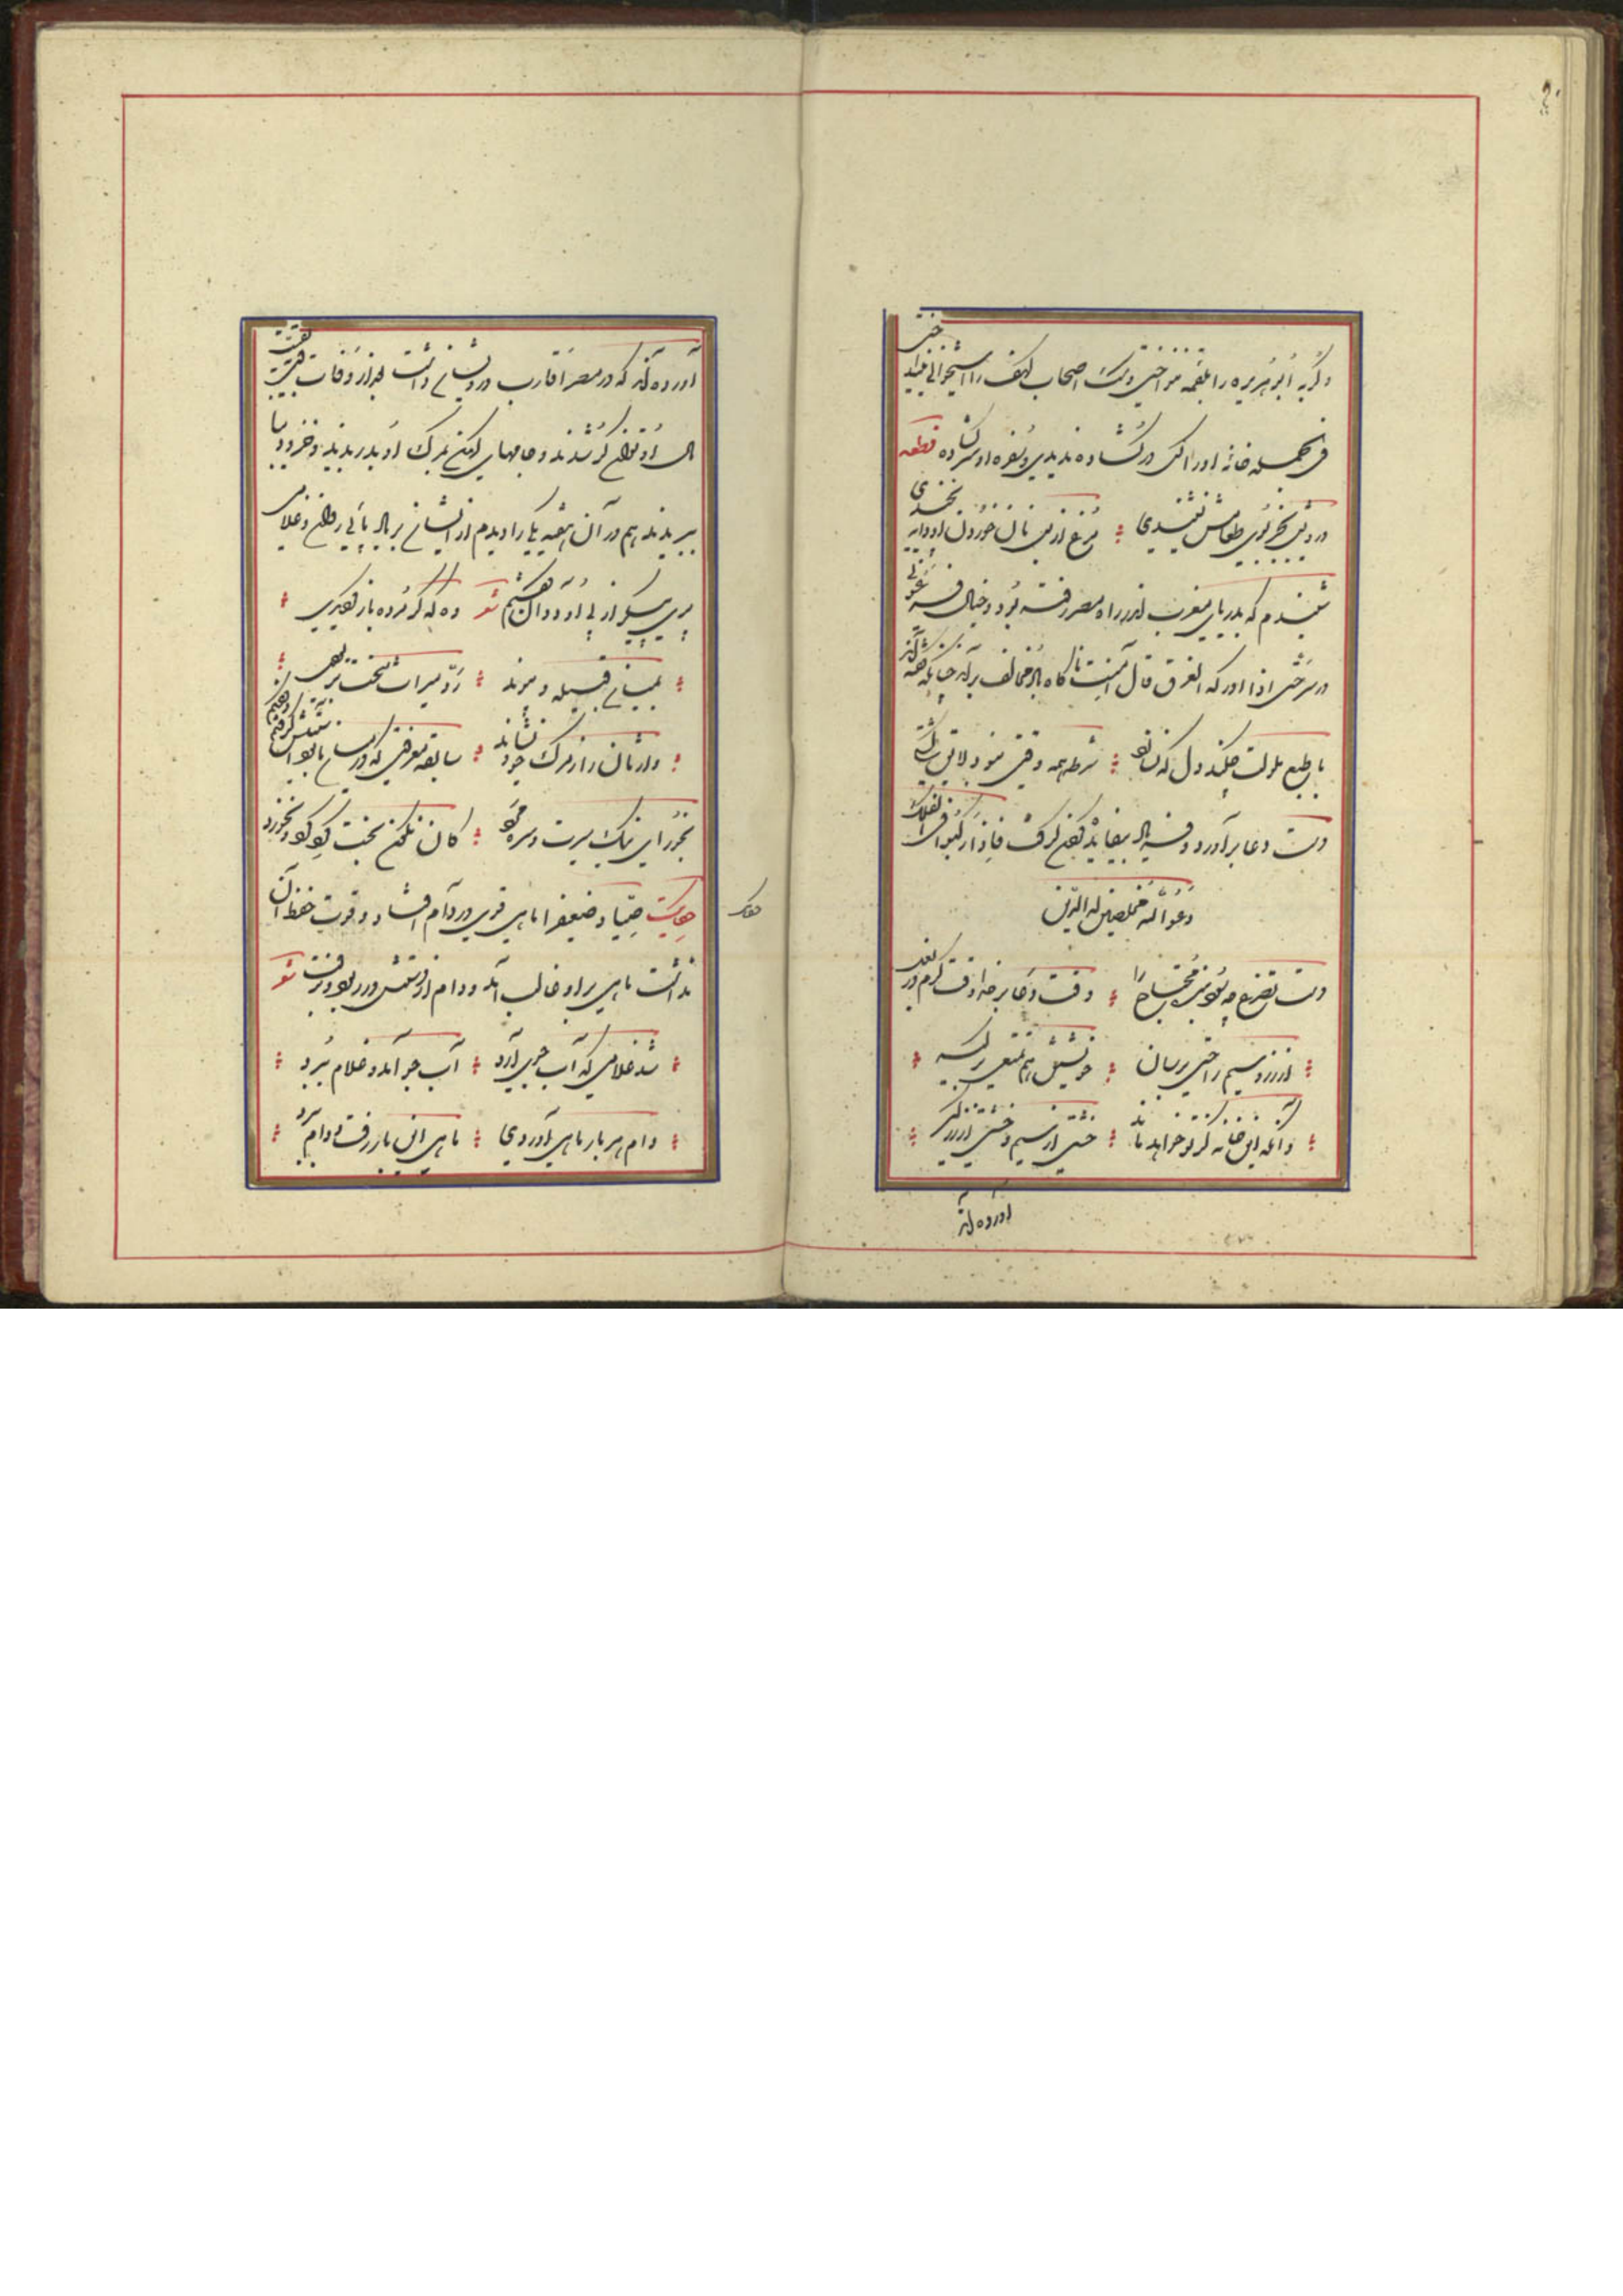 و گربه ابو هریره را بلقمه ننواختی و سگ اصحاب کهف را استخوانی نینداختی
فی الجمله خانه او را کس در گشاده ندیدی و سفره او سر گشاده قطعه
درویش بجز بوی طعامش نشنیدی مرغ از پس نان خوردن او دانه نچیدی
شنیدم که بدریای مغرب اندر راه مصر بر گرفته بود و خیال فرعونی
در سر حتی اذا ادرکه الغرق قال آمنت ناگاه باد مخالف برآمد چنانکه گفته‌اند
با طبع ملولت چکند دل که نسازد شرطه همه وقتی نبود لایق کشتی
دست دعا برآورد و فریاد بیفایده کردن گرفت فاذا رکبوا فی الفلک
دعوا الله مخلصین له الدین
دست تضرع چه سود بنده محتاج را وقت دعا بر خدا وقت کرم در بغل
از زر و سیم راحتی برسان خویشتن هم تمتعی بر گیر
وآنگه این خانه کز تو خواهد ماند خشتی از سیم و خشتی از زر گیر
آورده‌اند
آورده‌اند که در مصر اقارب درویش داشت بعد از وفات بقیت
مال او توانگر شدند و جامهای کهن بمرگ او بدریدند و خز و دمیاطی
ببریدند هم در آن هفته یکی را دیدم از ایشان بر بادپائی روان و غلامی
پری پیکر از پی او دوان گفتم شعر وه که گر مرده باز گردیدی
بمیان قبیله و پیوند رد میراث سخت‌تر بودی
وارثان را ز مرگ خویشاوند سابقه معرفتی که در میان ما بود آستینش گرفتم و گفتم
بخور ای نیک سیرت سره مرد کان نگون بخت گرد کرد و نخورد
حکایت صیاد ضعیف را ماهی قوی در دام افتاد و قوت حفظ آن
نداشت ماهی بر او غالب آمد و دام از دستش در ربود و برفت شعر
شد غلامی که آب جوی آرد آب جو آمد و غلام ببرد
دام هر بار ماهی آوردی ماهی این بار رفت و دام ببرد